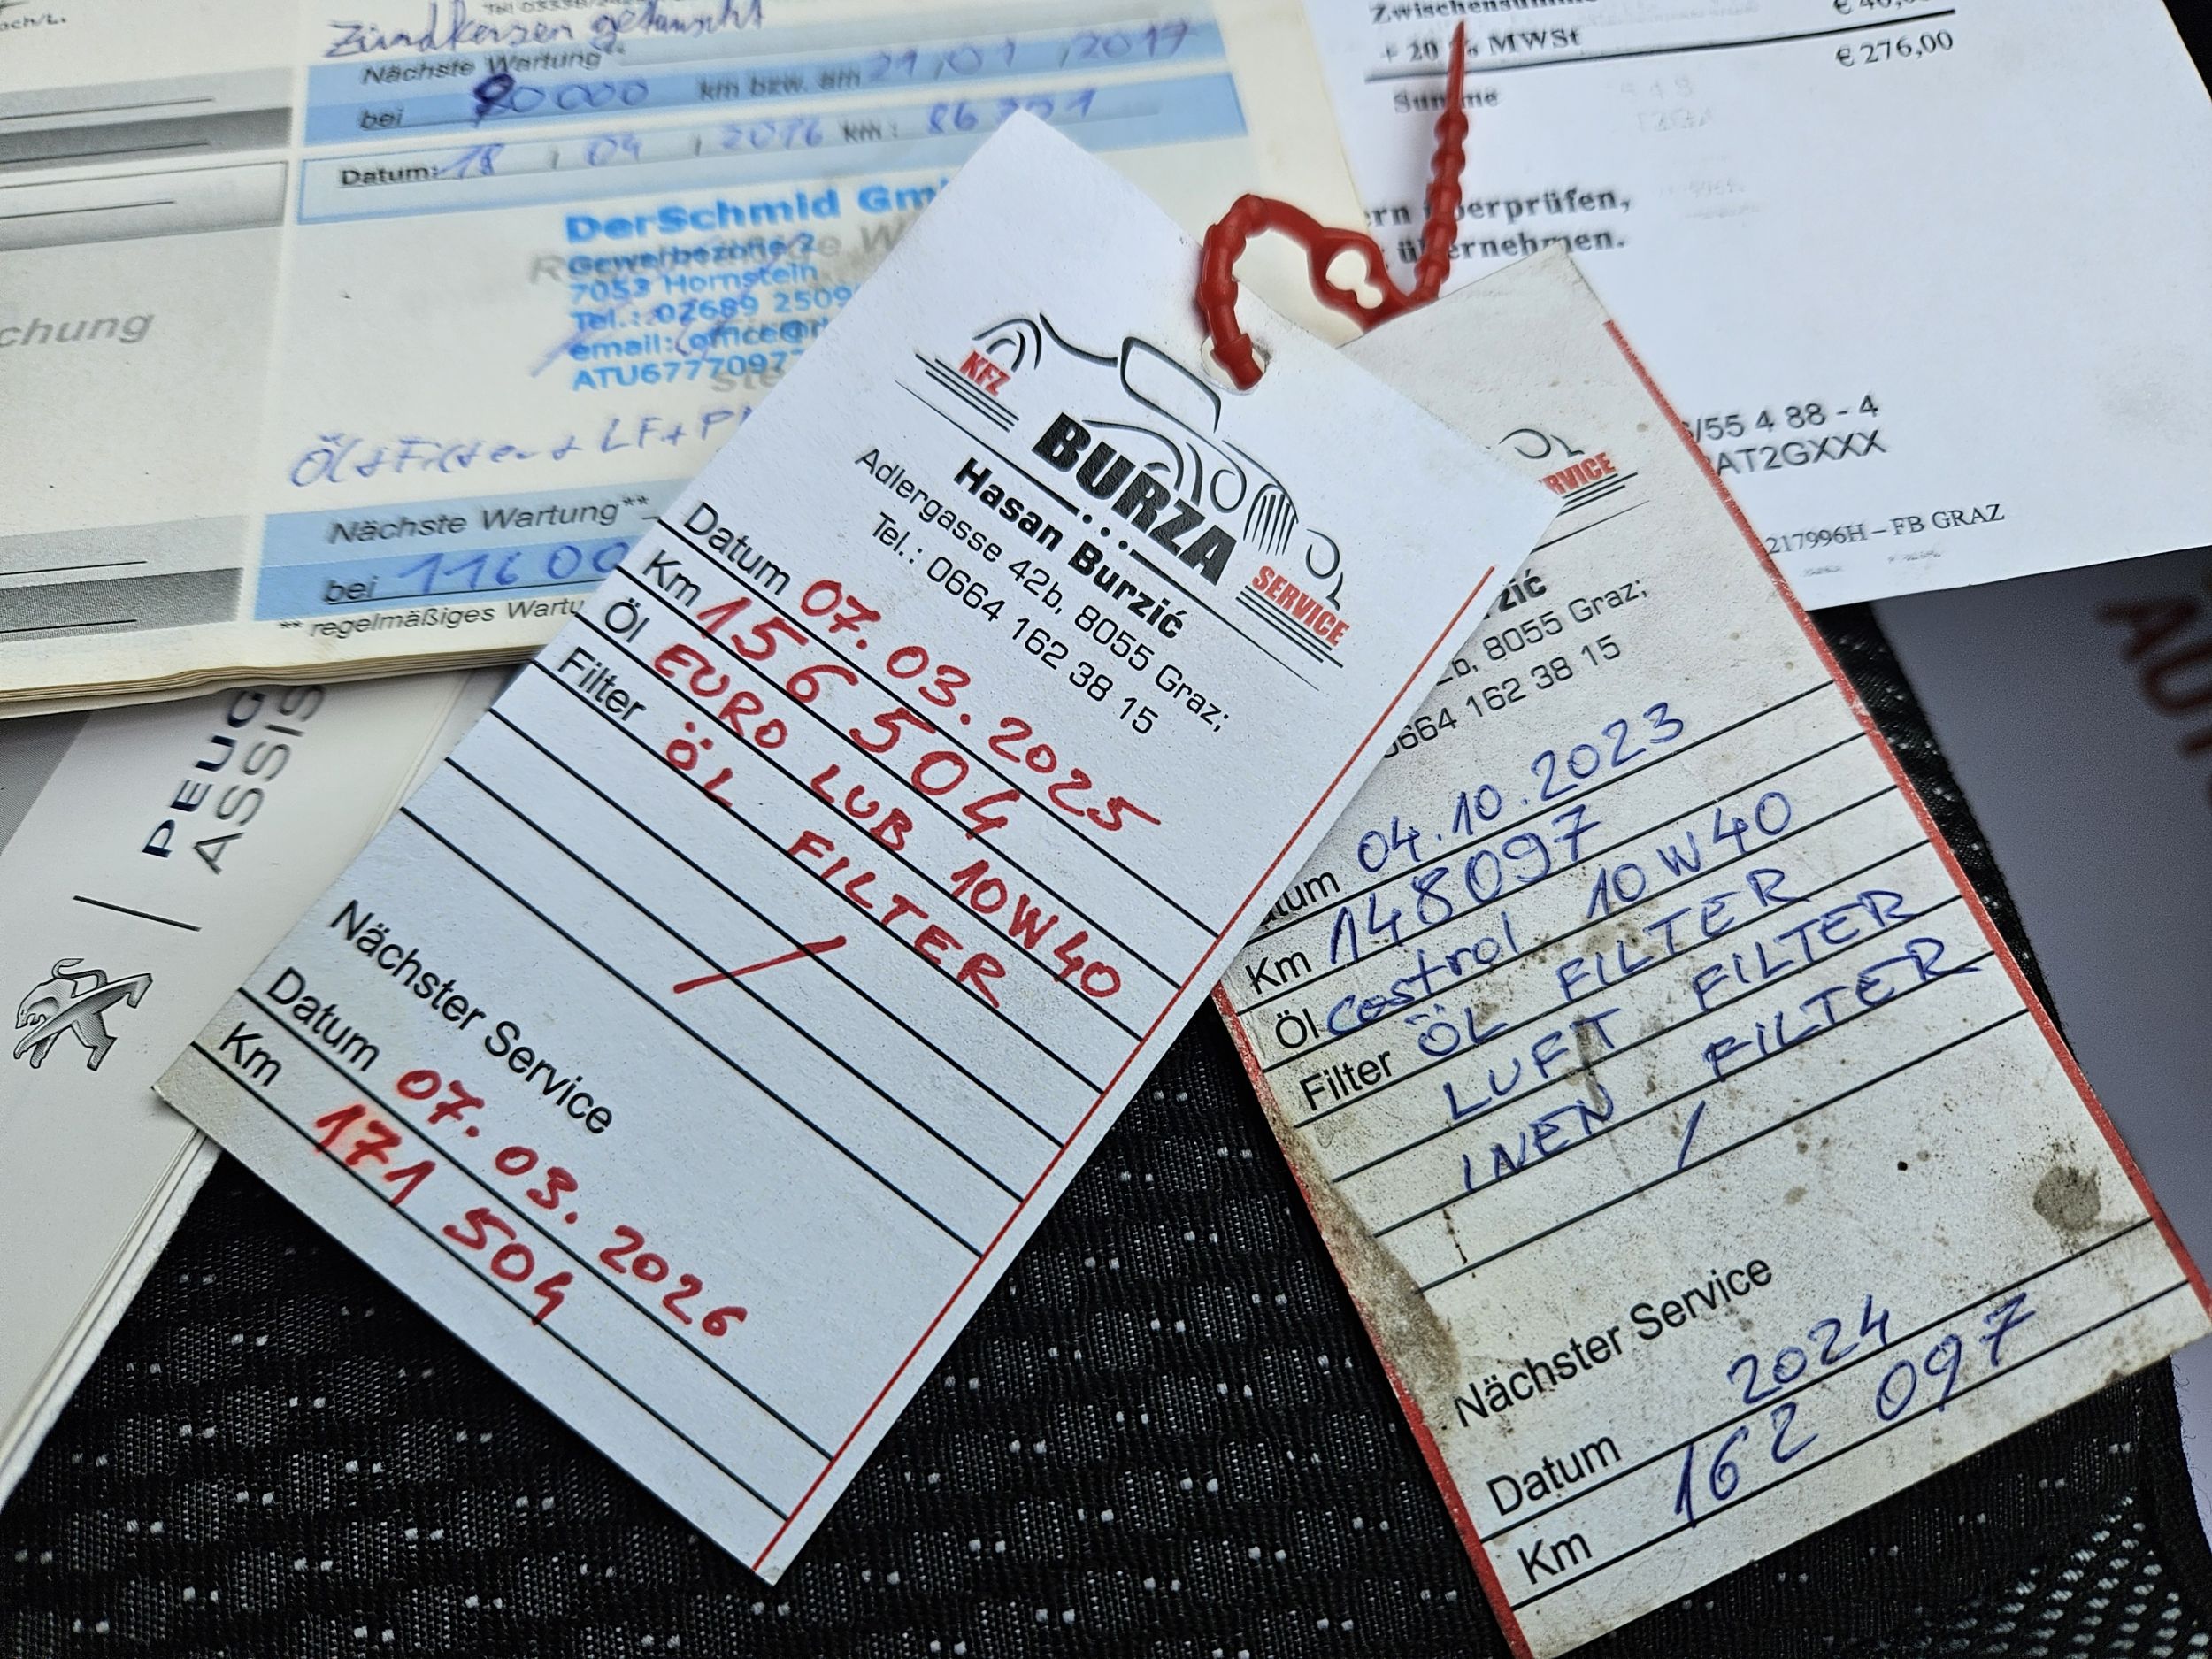 och/L.
Zündkerzen getauscht
Nächste Wartung**
bei 90000 km bzw. am 21/01/2017
Datum: 18/04/2016 km: 86751
DerSchmid Gm
Gewerbezone 2
7053 Hornstein
Tel.: 02689 2509
email: office@
ATU6777097
chung
Öl+Filter+LF+P
Nächste Wartung**
bei 11600
** regelmäßiges Wartu
PEUG
ASSIS
Zwischensumme
+ 20 % MWSt
€ 276,00
Summe
ern überprüfen,
übernehmen.
/55 4 88 - 4
AT2GXXX
217996H – FB GRAZ
AUT
KFZ
BURZA
SERVICE
Hasan Burzić
Adlergasse 42b, 8055 Graz;
Tel.: 0664 162 38 15
Datum 07.03.2025
Km 156 504
Öl EURO LUB 10W40
Filter ÖL FILTER
/
Nächster Service
Datum 07.03.2026
Km 171 504
RVICE
zić
b, 8055 Graz;
0664 162 38 15
tum 04.10.2023
Km 148097
Öl Castrol 10W40
Filter ÖL FILTER
LUFT FILTER
INEN FILTER
/
Nächster Service
Datum 2024
Km 162 097